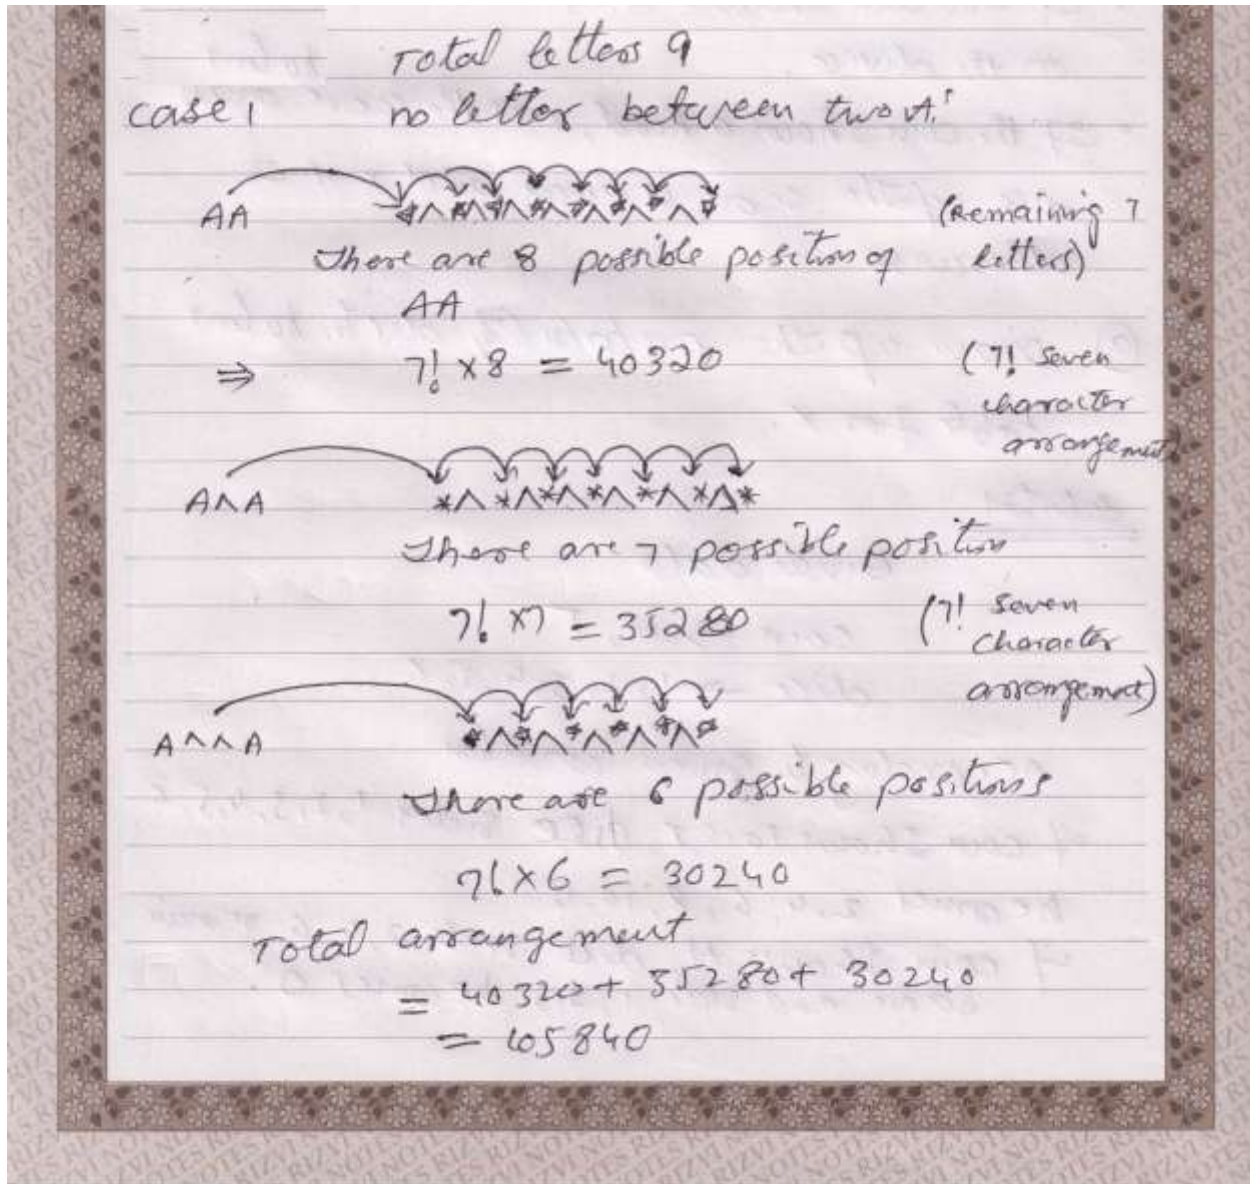 Total letters 9
case 1 no letter between two A'
AA *∧*∧*∧*∧*∧*∧*∧* (Remaining 7
There are 8 possible position of letters)
AA
⇒ 7! × 8 = 40320 (7! Seven
character
arrangement)
A∧A *∧*∧*∧*∧*∧*∧*
There are 7 possible position
7! ×7 = 35280 (7! Seven
Character
arrangement)
A∧∧A *∧*∧*∧*∧*∧*
There are 6 possible positions
7! × 6 = 30240
Total arrangement
= 40320 + 35280 + 30240
= 105840
RIZVI NOTES